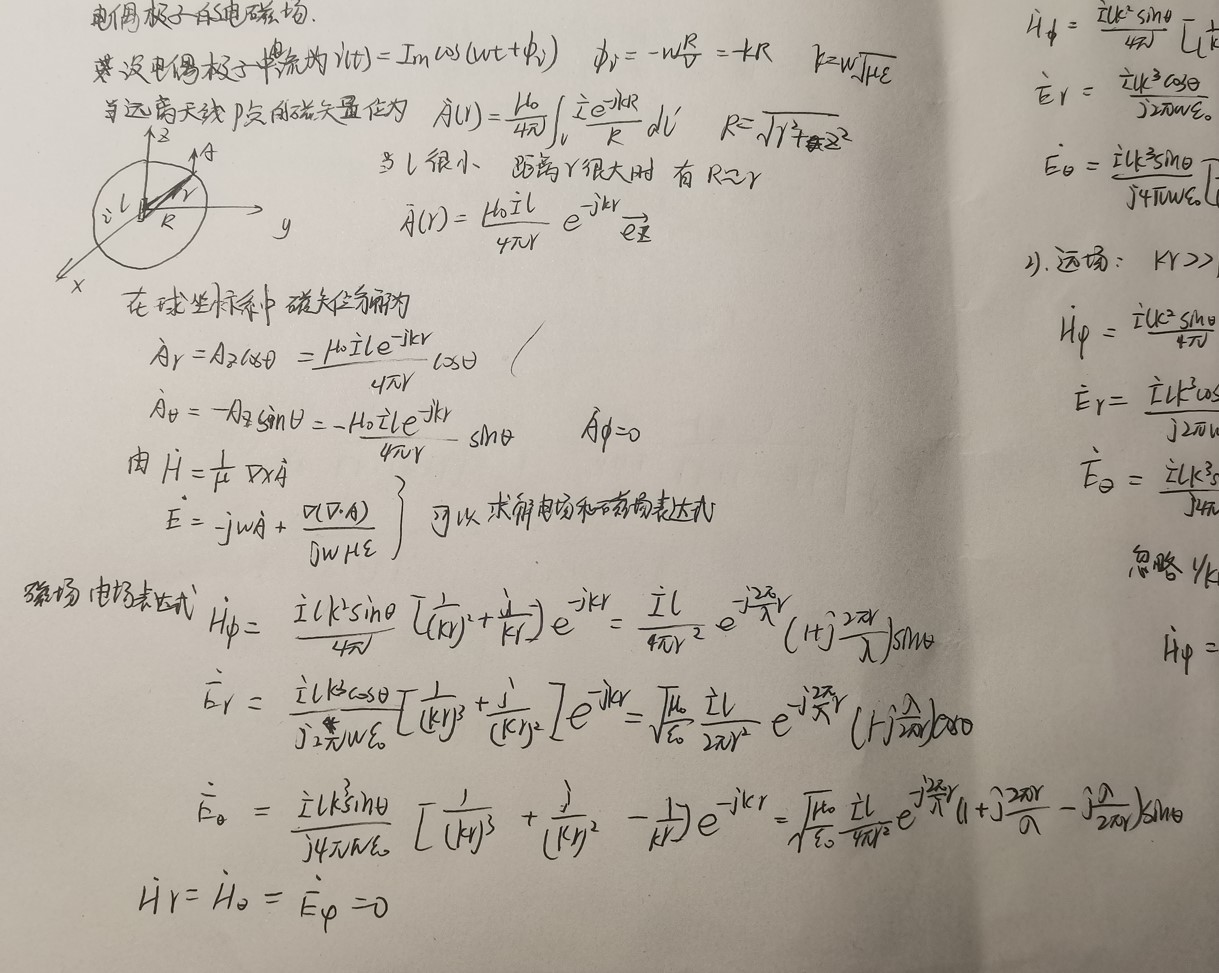 电偶极子的电磁场.
假设电偶极子电流为 i(t) = Im cos(wt+φv) φv = -w R/v = -kR k=w√με
当远离天线P点的磁矢量位为 Ȧ(r) = μ0/4π ∫v İe^-jkR/R dl' R=√r²+z²
当 l 很小 距离 r 很大时 有 R≈r
Ȧ(r) = μ0İl/4πr e^-jkr ez
z A i l r R y x
在球坐标系中 磁矢位分解为
Ȧr = Az cosθ = μ0İle^-jkr/4πr cosθ
Ȧθ = -Az sinθ = -μ0İle^-jkr/4πr sinθ Ȧφ=0
由 Ḣ = 1/μ ∇×Ȧ
Ė = -jwȦ + ∇(∇·Ȧ)/jwμε } 可以求解电场和磁场表达式
磁场 电场表达式 Ḣφ = İlk²sinθ/4π [1/(kr)² + j/kr] e^-jkr = İl/4πr² e^-j2π/λ r (1+j 2πr/λ) sinθ
Ėr = İlk³cosθ/j2πwε0 [1/(kr)³ + j/(kr)²] e^-jkr = √μ0/ε0 İl/2πr² e^-j2π/λ r (1-j λ/2πr) cosθ
Ėθ = İlk³sinθ/j4πwε0 [1/(kr)³ + j/(kr)² - 1/kr] e^-jkr = √μ0/ε0 İl/4πr² e^-j2π/λ r (1+j 2πr/λ - j λ/2πr) sinθ
Ḣr = Ḣθ = Ėφ = 0
Ḣφ = İlk²sinθ/4π [
Ėr = İlk³cosθ/j2πwε0
Ėθ = İlk³sinθ/j4πwε0 [
2). 远场: kr>>
Ḣφ = İlk²sinθ/4π
Ėr = İlk³cos/j2π
Ėθ = İlk³s/j4π
忽略 1/k
Ḣφ =